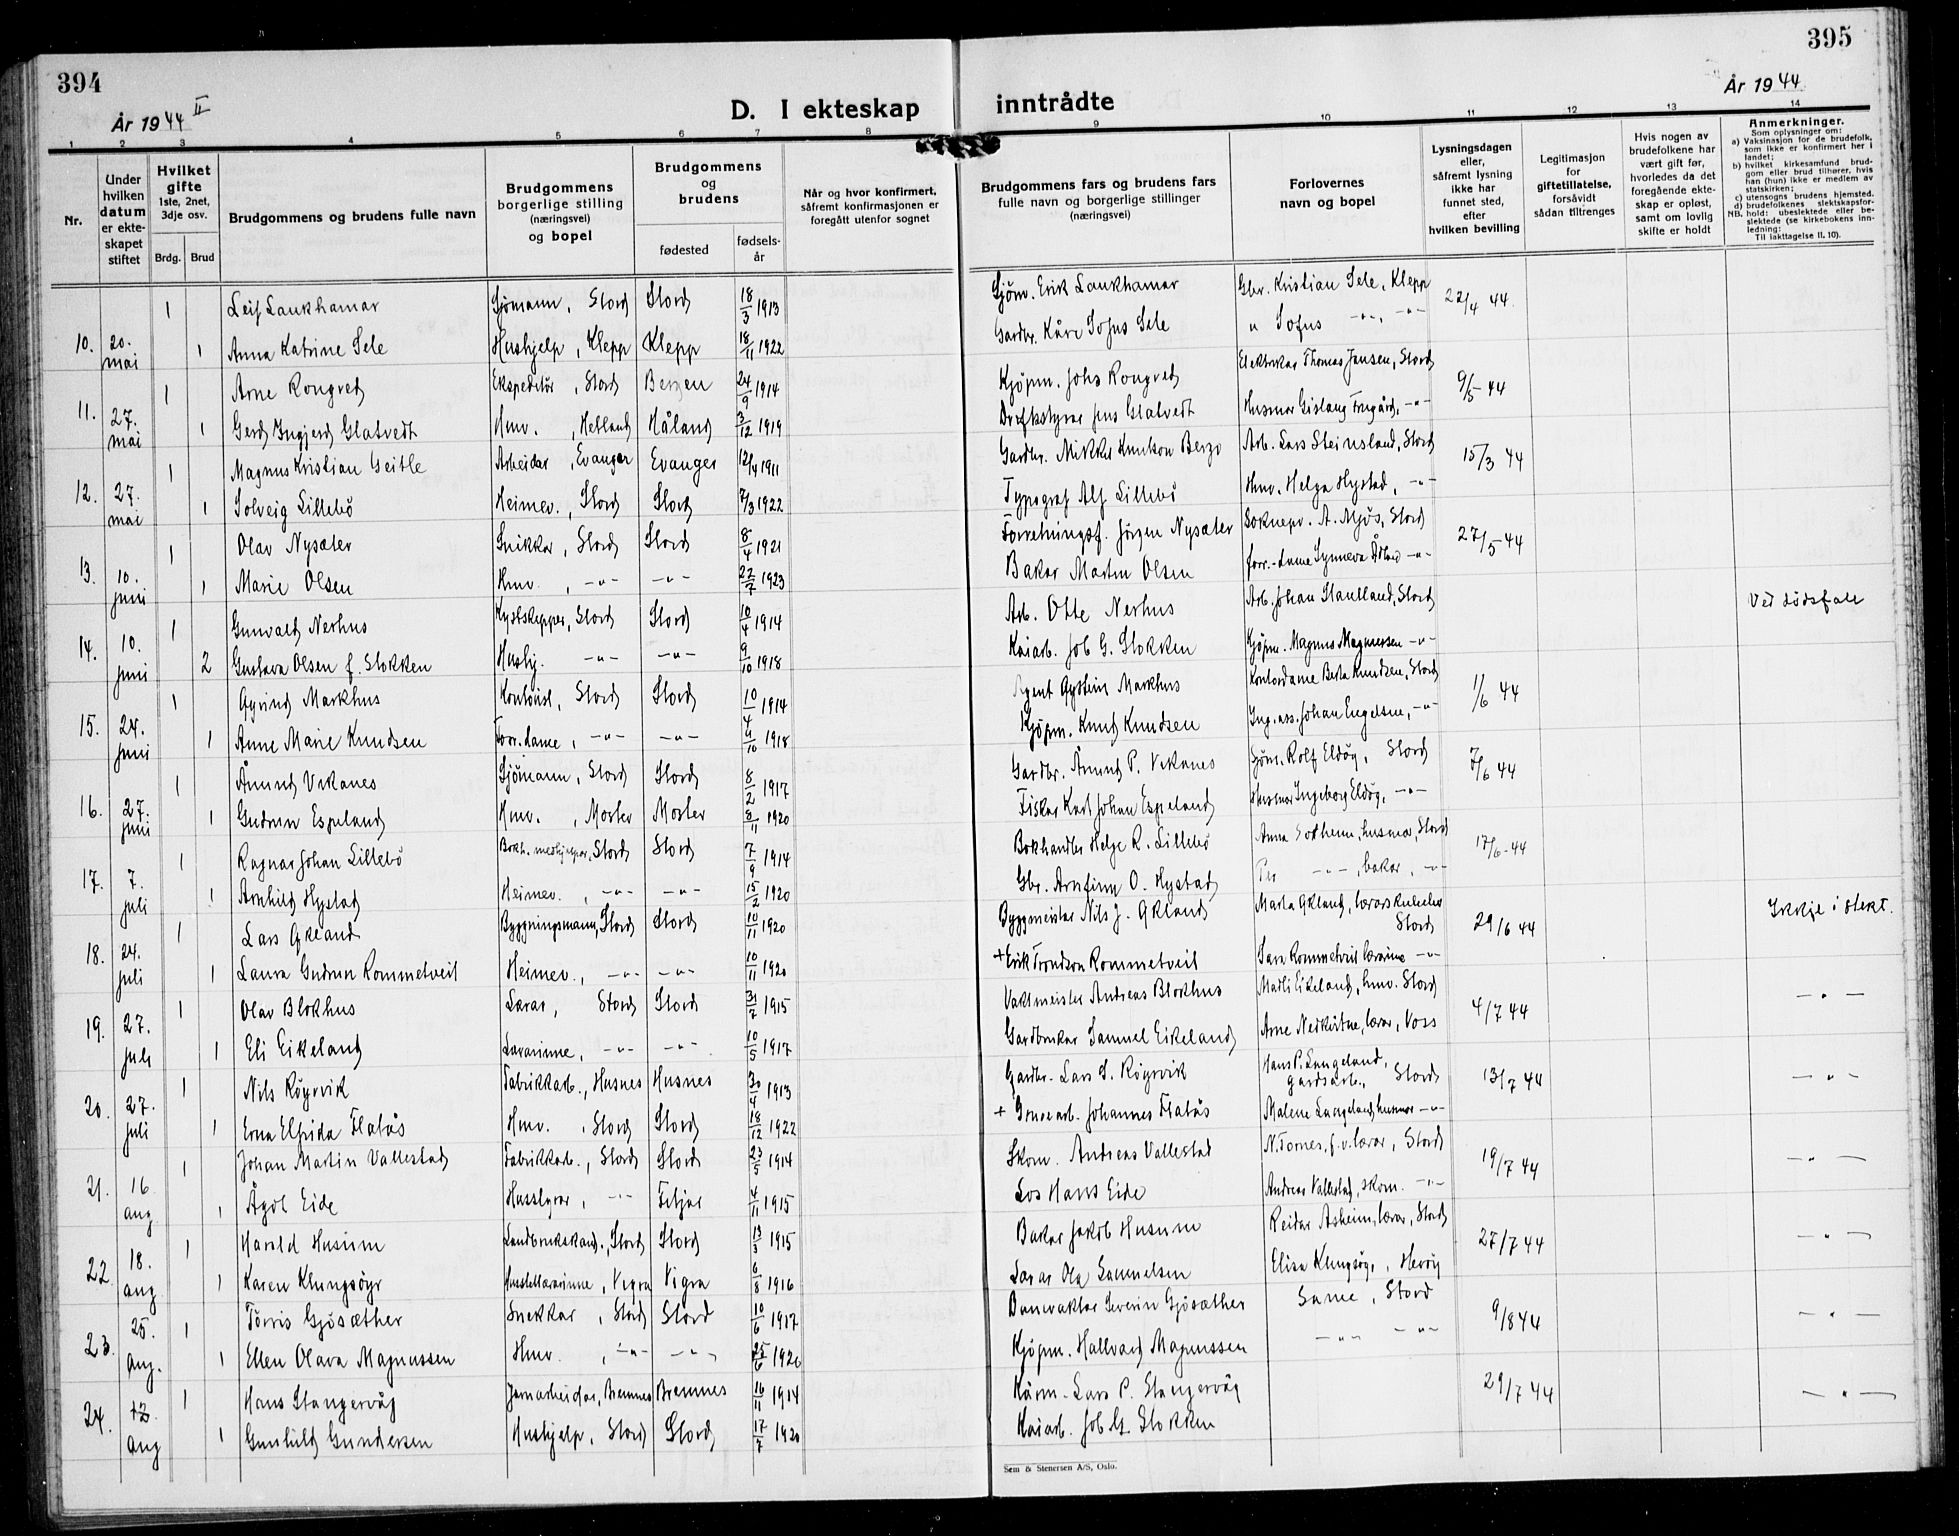 394
År 1944 II
D. I ekteskap
1 2 3 4 5 6 7 8
Nr.
Under hvilken datum er ekte- skapet stiftet
Hvilket gifte 1ste, 2net, 3dje osv.
Brdg. Brud
Brudgommens og brudens fulle navn
Brudgommens borgerlige stilling (næringsvei) og bopel
Brudgommens og brudens
fødested
fødsels- år
Når og hvor konfirmert, såfremt konfirmasjonen er foregått utenfor sognet
1 Leif Laukhamar Sjømann, Stord Stord 18/3 1913
10. 20. mai 1 Anna Katrine Sele Hushjelp, Klepp Klepp 18/11 1922
1 Arne Rongved Ekspeditør, Stord Bergen 24/9 1914
11. 27. mai 1 Gerd Ingjerd Glatvedt Hmv., Hetland Håland 3/12 1919
1 Magnus Kristian Geitle Arbeidar, Evanger Evanger 12/4 1911
12. 27. mai 1 Solveig Lillebø Heimev., Stord Stord 7/3 1922
1 Olav Nysæter Snikkar, Stord Stord 8/4 1921
13. 10. juni 1 Marie Olsen Hmv., -"- -"- 22/7 1923
1 Gunvald Nerhus Kystskipper, Stord Stord 10/4 1914
14. 10. juni 2 Gustava Olsen f. Stokken Hushj. -"- -"- 9/10 1918
1 Øyvind Markhus Kontorist, Stord Stord 10/4 1914
15. 24. juni 1 Anne Marie Knudsen Forr.dame, -"- -"- 4/10 1918
1 Åmund Vikanes Sjømann, Stord Stord 8/2 1917
16. 27. juni 1 Gudrun Espeland Hmv., Moster Moster 8/11 1920
1 Ragnar Johan Lillebø Bokh. medhjelper, Stord Stord 7/9 1914
17. 7. juli 1 Arnhild Hystad Heimev., -"- -"- 15/2 1920
1 Lars Økland Byggningsmann, Stord Stord 10/11 1920
18. 24. juli 1 Laura Gudrun Rommetveit Heimev., -"- -"- 10/11 1920
1 Olav Blokhus Lærar, Stord Stord 31/7 1915
19. 27. juli 1 Eli Eikeland Lærarinne, -"- -"- 10/5 1917
1 Nils Røyrvik Fabrikkarb., Husnes Husnes 30/4 1913
20. 27. juli 1 Erna Elfrida Flatås Hmv., Stord Stord 18/12 1922
1 Johan Martin Vallestad Fabrikkarb., Stord Stord 23/5 1914
21. 16. aug 1 Ågot Eide Husstyrar, -"- Fitjar 4/11 1915
1 Harald Husum Landbrukskand., Stord Stord 13/3 1915
22. 18. aug 1 Karen Klungsøyr Husstellærarinne, Vigra Vigra 6/8 1916
1 Torris Gjøsæther Snekkar, Stord Stord 10/6 1917
23. 25. aug. 1 Ellen Olava Magnussen Hmv., -"- -"- 25/6 1920
1 Hans Stangervåg Jarnarbeidar, Bremnes Bremnes 16/11 1914
24. 12. aug 1 Gunhild Gundersen Hushjelp, Stord Stord 17/7 1920
395
År 1944
inntrådte
9 10 11 12 13 14
Brudgommens fars og brudens fars fulle navn og borgerlige stillinger (næringsvei)
Forlovernes navn og bopel
Lysningsdagen eller, såfremt lysning ikke har funnet sted, efter hvilken bevilling
Legitimasjon for giftetillatelse, forsåvidt sådan tiltrenges
Hvis nogen av brudefolkene har vært gift før, hvorledes da det foregående ekte- skap er opløst, samt om lovlig skifte er holdt
Anmerkninger.
Som oplysninger om:
a) Vaksinasjon for de brudefolk, som ikke er konfirmert her i landet;
b) hvilket kirkesamfund brud- gom eller brud tilhører, hvis han (hun) ikke er medlem av statskirken;
c) utensogns brudens hjemsted.
d) brudefolkenes slektskapsfor- hold: ubeslektede eller be- slektede (se kirkebokens inn- ledning:
NB. Til iakttagelse II. 10).
Sjøm. Erik Laukhamar Gbr. Kristian Sele, Klepp 22/4 44.
Gardbr. Kåre Sofus Sele " Sofus -"-, -"-
Kjøpm. Johs Rongved Elektrikar Thomas Jansen, Stord 9/5 44
Driftstyrar Jens Glatvedt Husmor Gislaug Trugård, -"-
Gardbr. Mikkel Knutson Berge Arb. Lars Steinsland, Stord 15/3 44
Typograf Alf Lillebø Hmv. Helga Hystad, -"-
Forretningsf. Jørgen Nysæter Sokneprv. A. Mjøs, Stord 27/5 44
Bakar Martin Olsen forr.-dame Synneva Ådland -"-
Arb. Otto Nerhus Arb. Johan Stautland, Stord Ved dødsfall
Kaiarb. Job G. Stokken Kjøpm. Magnus Magnussen -"-
Agent Øystein Markhus Kontordame Berta Knudsen, Stord 1/6 44
Kjøpm. Knud Knudsen Ing.ass. Johan Engelsne, -"-
Gardbr. Åmund P. Vikanes Sjøm. Rolf Eldøy, Stord 7/6 44
Fiskar Karl Johan Espeland Husmor Ingeborg Eldøy, -"-
Bokhandler Helge R. Lillebø Anna Sotheim, husmor, Stord 17/6-44
Gbr. Arnfinn O. Hystad Per -"-, bakar, -"-
Byggmeister Nils J. Økland Marta Økland, Stord 29/6 44 Ikkje i slekt.
+ Erik Trondson Rommetveit Sara Rommetveit lærarinne -"-
Vaktmeister Andreas Blokhus Matli Eikeland, hmv. Stord 4/7 44 -"-
Gardbrukar Samuel Eikeland Arne Nedkvitne, lærar, Voss
Gardbr. Lars S. Røyrvik Hans P. Langeland, gardsarb., Stord 13/7 44 -"-
+ Gruvearb. Johannes Flatås Malene Langeland, husmor -"-
Skom. Andreas Vallestad N. Tornes, f.v. lærar, Stord 19/7 44 -"-
Los Hans Eide Andreas Vallestad, skom. -"-
Bakar Jakob Husum Reidar Asheim, lærar, Stord 27/7 44 -"-
Lærar Ola Samuelsen Elisa Klungsøyr, Herøy
Banevaktar Severin Gjøsæther Same, Stord 9/8 44 -"-
Kjøpm. Hallvard Magnussen -"- -"-
Kårm. Lars P. Stangervåg 29/7 44 -"-
Kaiarb. Job G. Stokken
Sem & Stenersen A/S, Oslo.